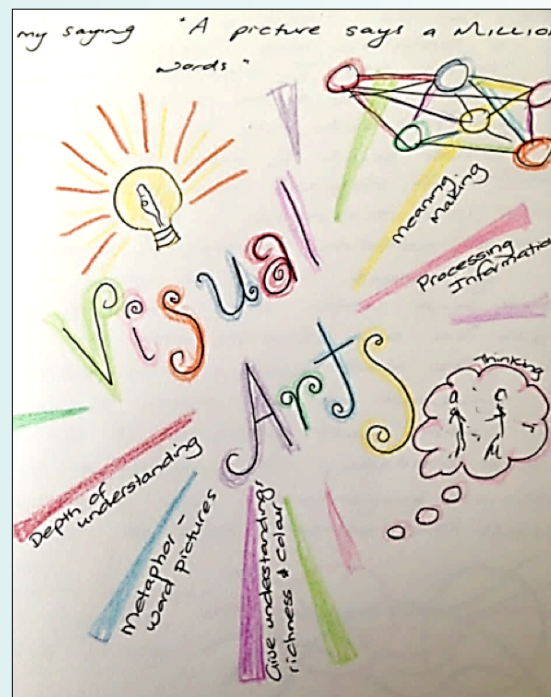 my saying "A picture says a MILLION
words"
Meaning
Making
Processing
Information
Visual
Arts
Thinking
Depth of
understanding
Metaphor -
word pictures
Give understanding,
richness & colour